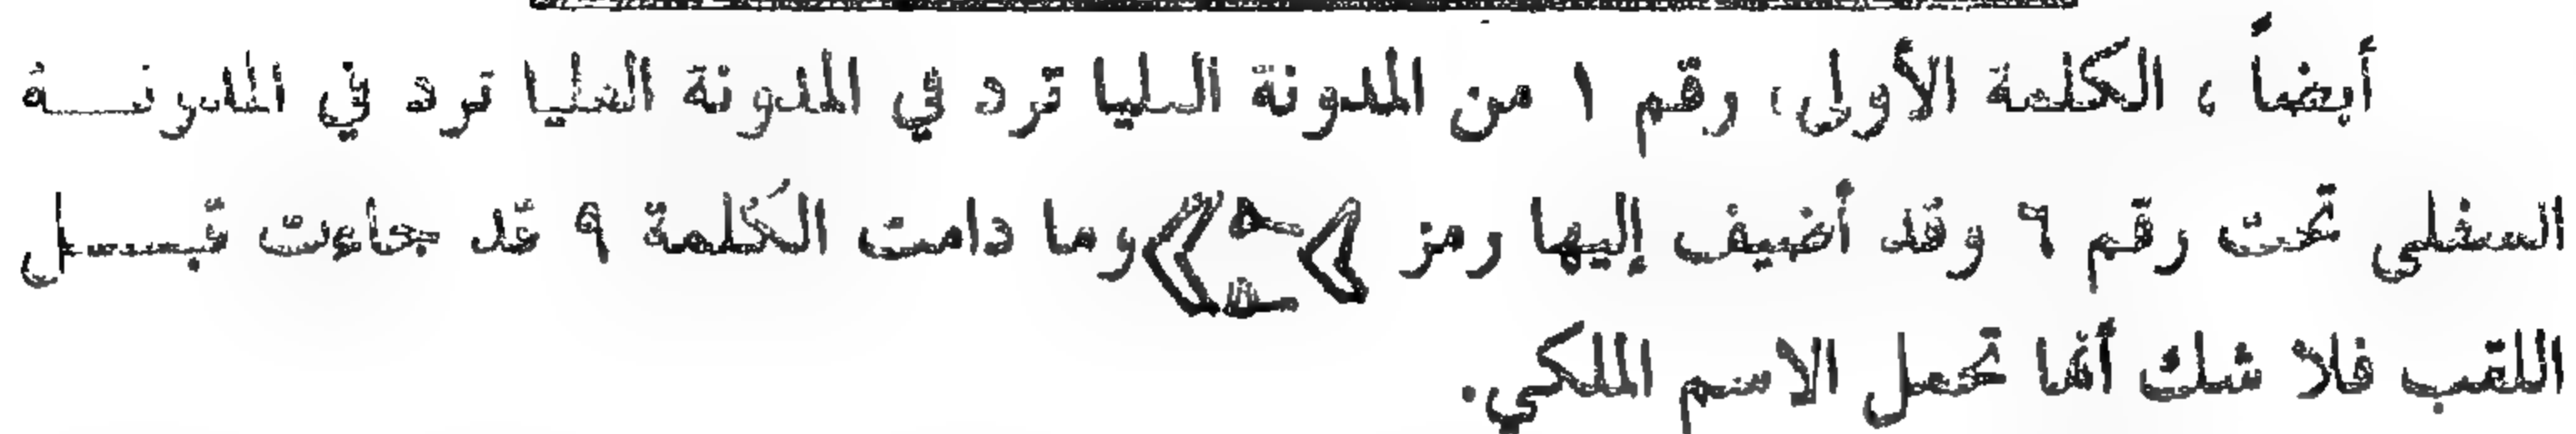 أيضاً ، الكلمة الأولى، رقم ١ من المدونة العليا ترد في المدونة العليا ترد في المدونـــة
السفلى تحت رقم ٦ وقد أضيف إليها رمز وما دامت الكلمة ٩ قد جاءت قبـــل
اللقب فلا شك أنها تحمل الاسم الملكي.